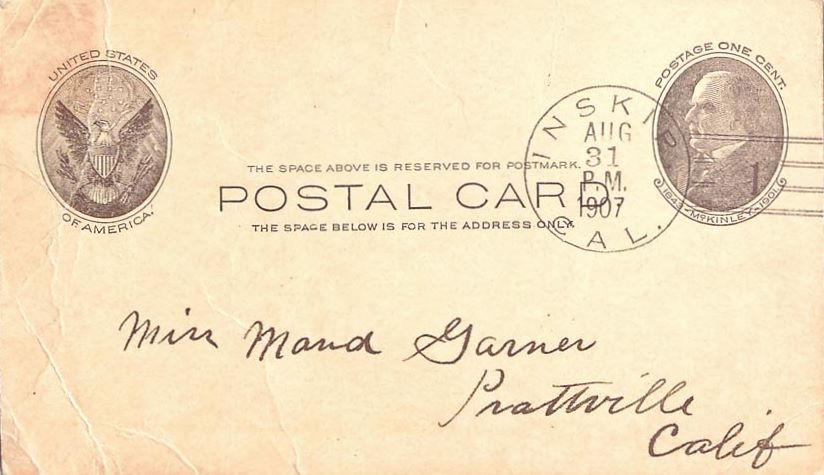 UNITED STATES
OF AMERICA.
POSTAGE ONE CENT.
1
1843-McKINLEY-1901
INSKIP
AUG
31
P.M.
1907
CAL.
THE SPACE ABOVE IS RESERVED FOR POSTMARK.
POSTAL CARD
THE SPACE BELOW IS FOR THE ADDRESS ONLY.
Miss Maud Garner
Prattville
Calif